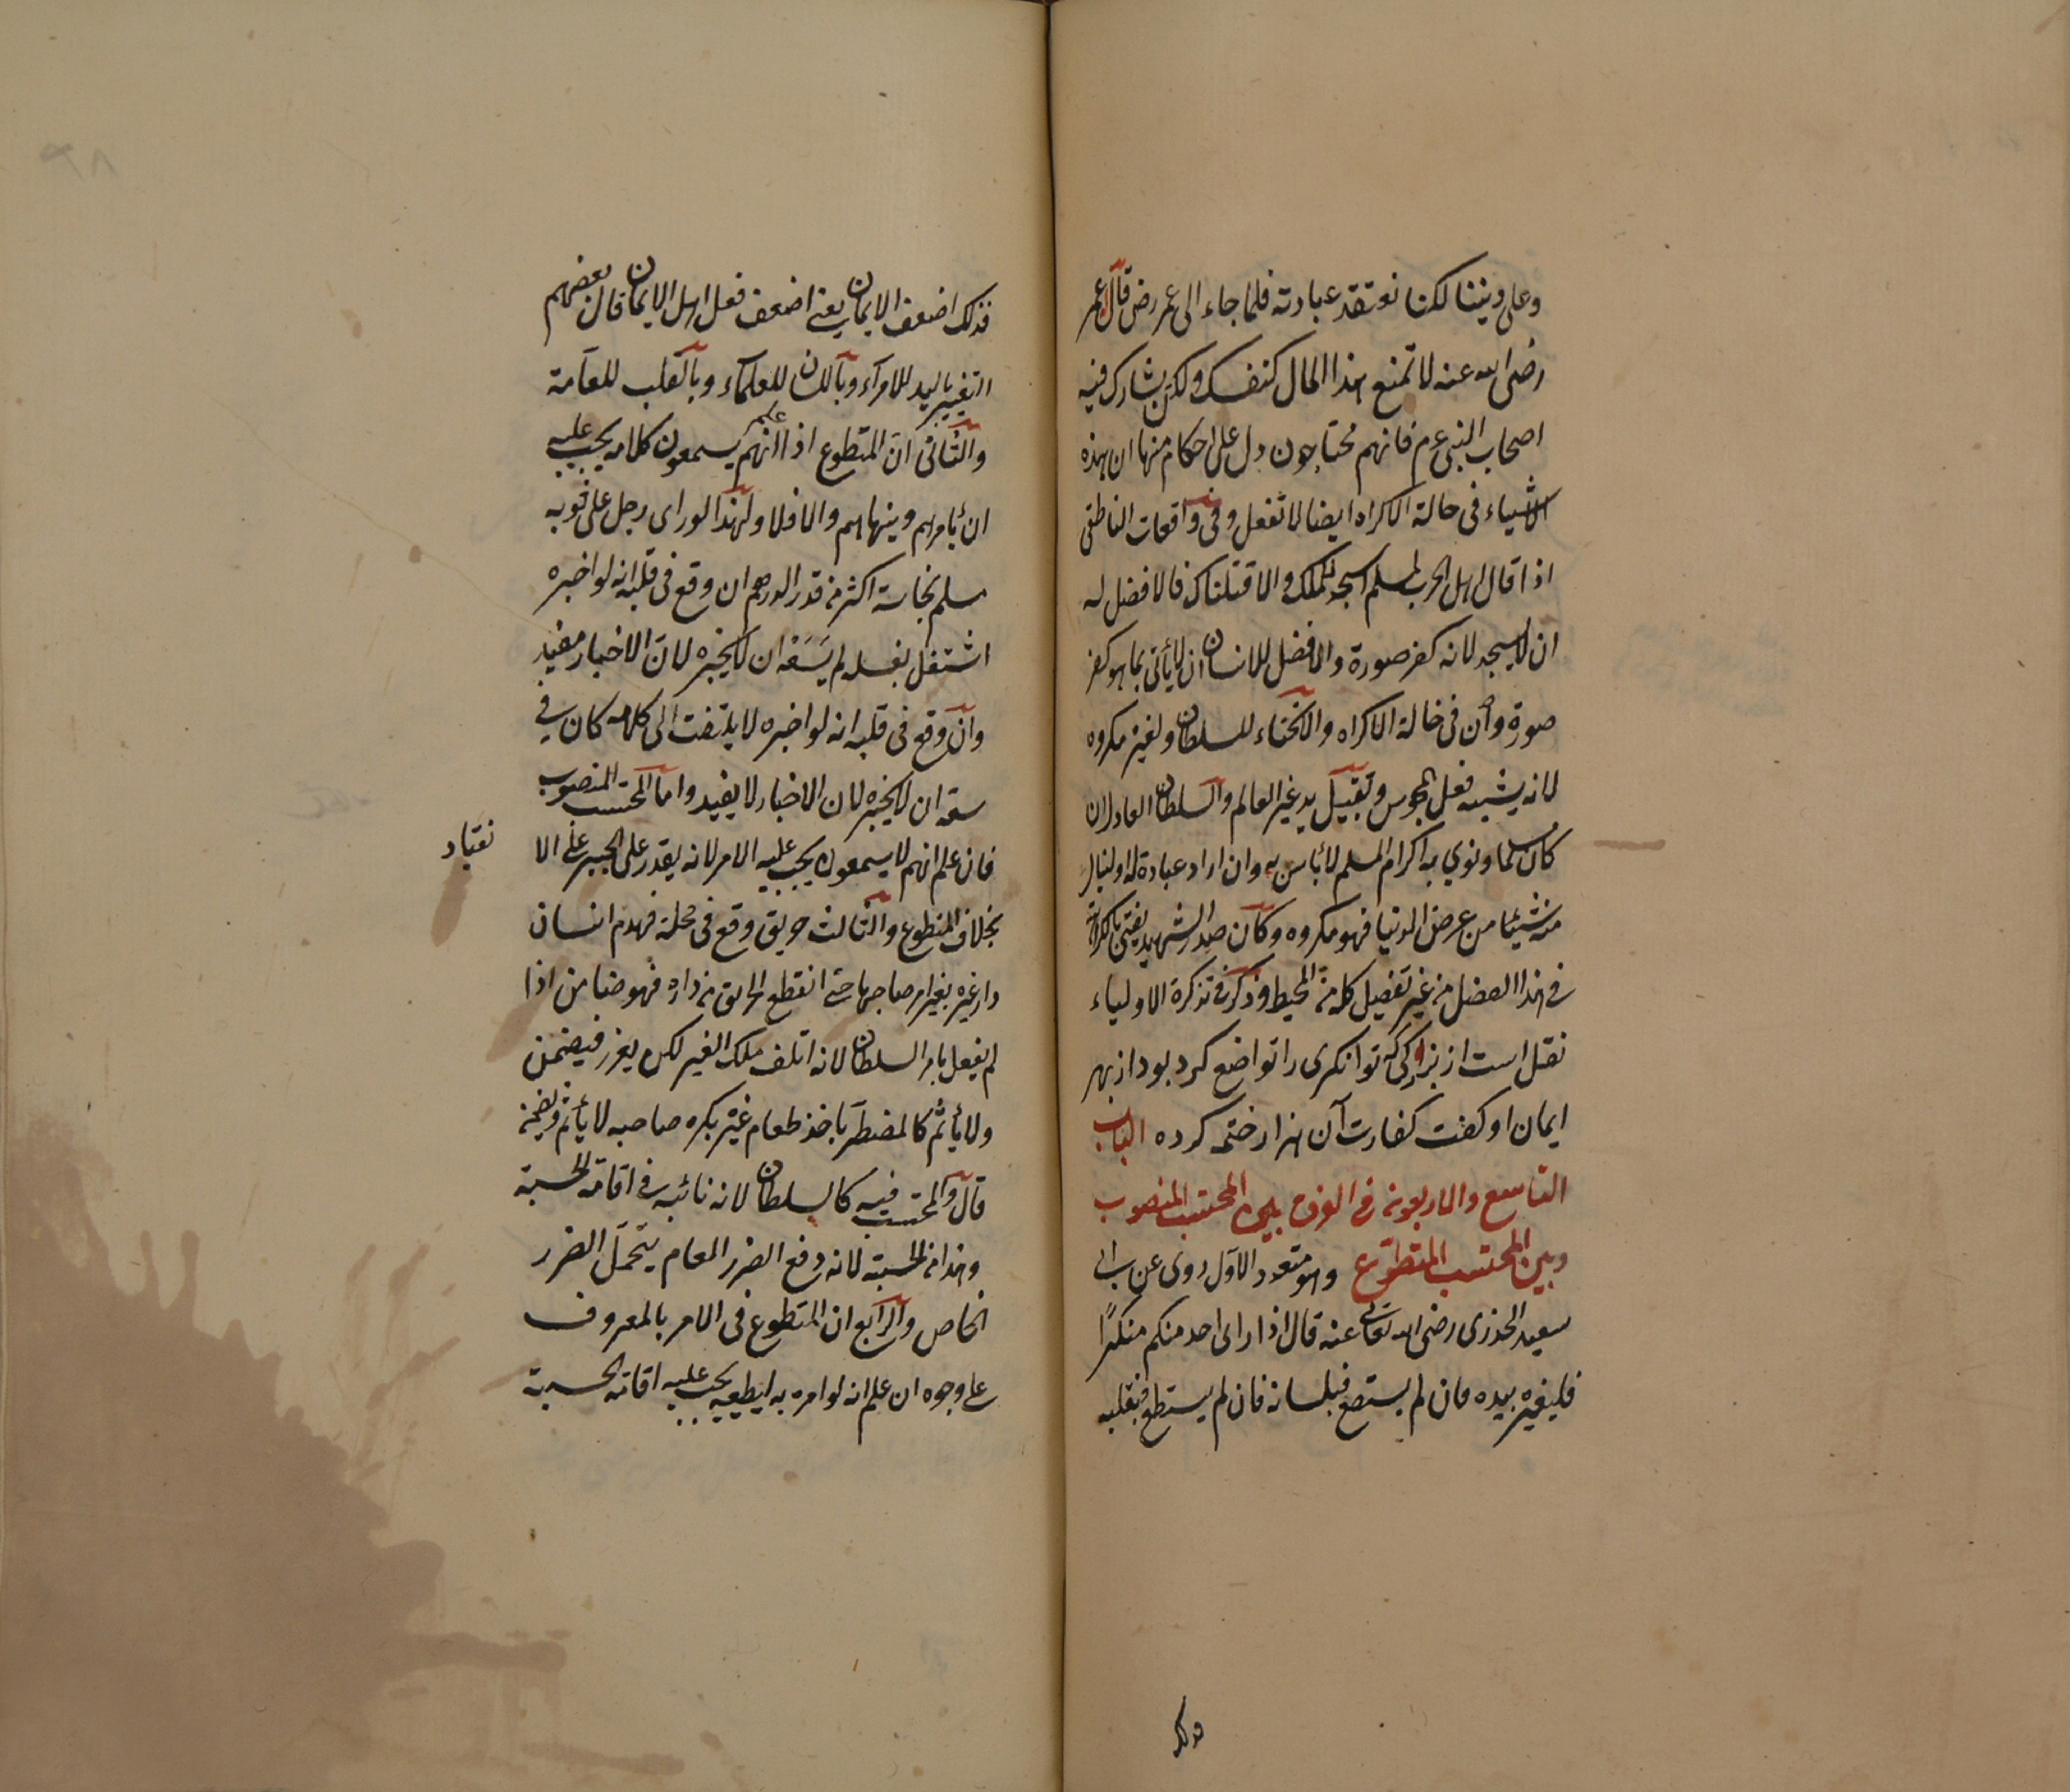 وعلى ديننا لكنا نعتقد عبادته فلما جاء الى عمر رض قال عمر
رضى الله عنه لا تمنع هذا المال كنفسك ولكن يشارك فيه
اصحاب النبى عم فانهم محتاجون دل على احكام منها ان هذه
الاشياء فى حالة الاكراه ايضا لا تفعل وفى واقعات الناطفى
اذا قال اهل الحرب لمسلم اسجد للملك والا قتلناك فالافضل له
ان لا يسجد لانه كفر صورة والافضل للانسان ان لا يأتى بما هو كفر
صورة وان فى حالة الاكراه والانحناء للسلطان ولغيره مكروه
لانه يشبه فعل المجوس وتقبيل يد غير العالم والسلطان العادل ان
كان مسلما ونوى به اكرام المسلم لا بأس به وان اراد عبادة له او لينال
منه شيئا من عرض الدنيا فهو مكروه وكان صدر الشهيد يفتى بالكراهة
فى هذا الفصل من غير تفصيل كله من المحيط وذكر فى تذكرة الاولياء
نقل است از بزركى كه توانكرى را تواضع كرد بود از بهر
ايمان او كفت كفارت آن هزار ختم كرده الباب
التاسع والاربعون فى الفرق بين المحتسب المنصوب
وبين المحتسب المتطوع وهو متعدد الاول روى عن ابى
سعيد الخدرى رضى الله تعالى عنه قال اذا راى احد منكم منكرًا
فليغيره بيده فان لم يستطع فبلسانه فان لم يستطع فبقلبه
فذلك
فذلك اضعف الايمان يعنى اضعف فعل اهل الايمان قال بعضهم
التغيير باليد للامرآء وباللسان للعلمآء وبالقلب للعآمة
والثانى ان المتطوع اذا علم انهم يسمعون كلامه يجب عليه
ان يأمرهم وينهاهم والا فلا ولهذا لو راى رجل على ثوب
مسلم نجاسة اكثر من قدر الدرهم ان وقع فى قلبه انه لو اخبره
اشتغل بغسله لم يَسَعْه ان لا يخبره لان الاخبار مفيد
وان وقع فى قلبه انه لو اخبره لا يلتفت الى كلامه كان فى
سعة ان لا يخبره لان الاخبار لا يفيد واما المحتسب المنصوب
فان علم انهم لا يسمعون يجب عليه الامر لانه يقدر على الجبر على الا
نقياد
بخلاف المتطوع والثالث حريق وقع فى محلة فهدم انسان
دار غيره بغير امر صاحبها حتى انقطع الحريق من داره فهو ضامن اذا
لم يفعل بامر السلطان لانه اتلف ملك الغير لكن يعزر فيضمن
ولا يأثم كالمضطر يأخذ طعام غيره بكره صاحبه لا يأثم ويضمنه
قال والمحتسب فيه كالسلطان لانه نائبه فى اقامة الحسبة
وهذا من الحسبة لانه دفع الضرر العام يتحمل الضرر
الخاص والرابع ان المتطوع فى الامر بالمعروف
على وجوه ان علم انه لو امره به ايطيعه يجب عليه اقامة الحسبة